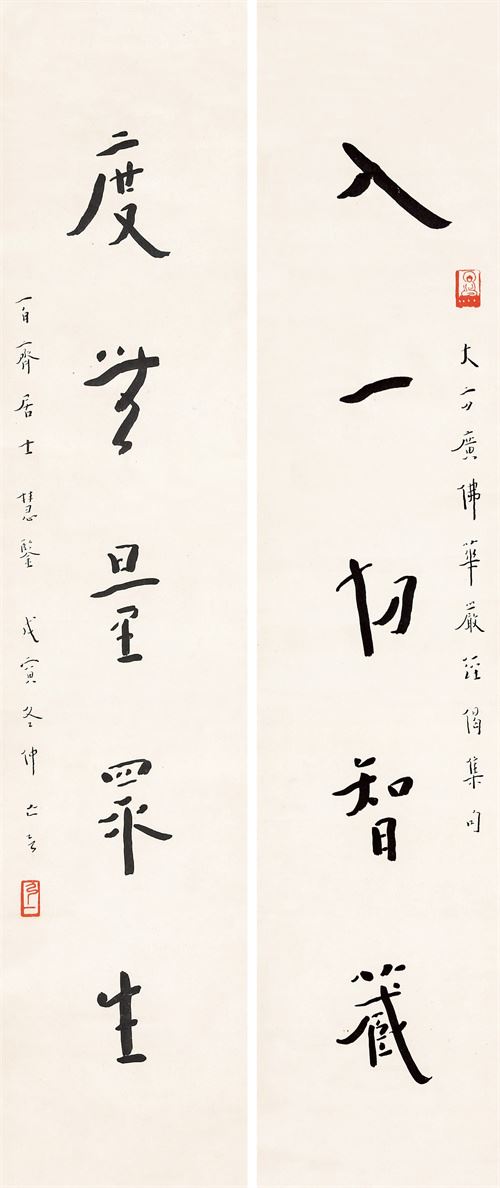 入一切智藏
大方廣佛華嚴經偈集句
度無量眾生
百齊居士慧鑒 戊寅冬仲亡言
弘一